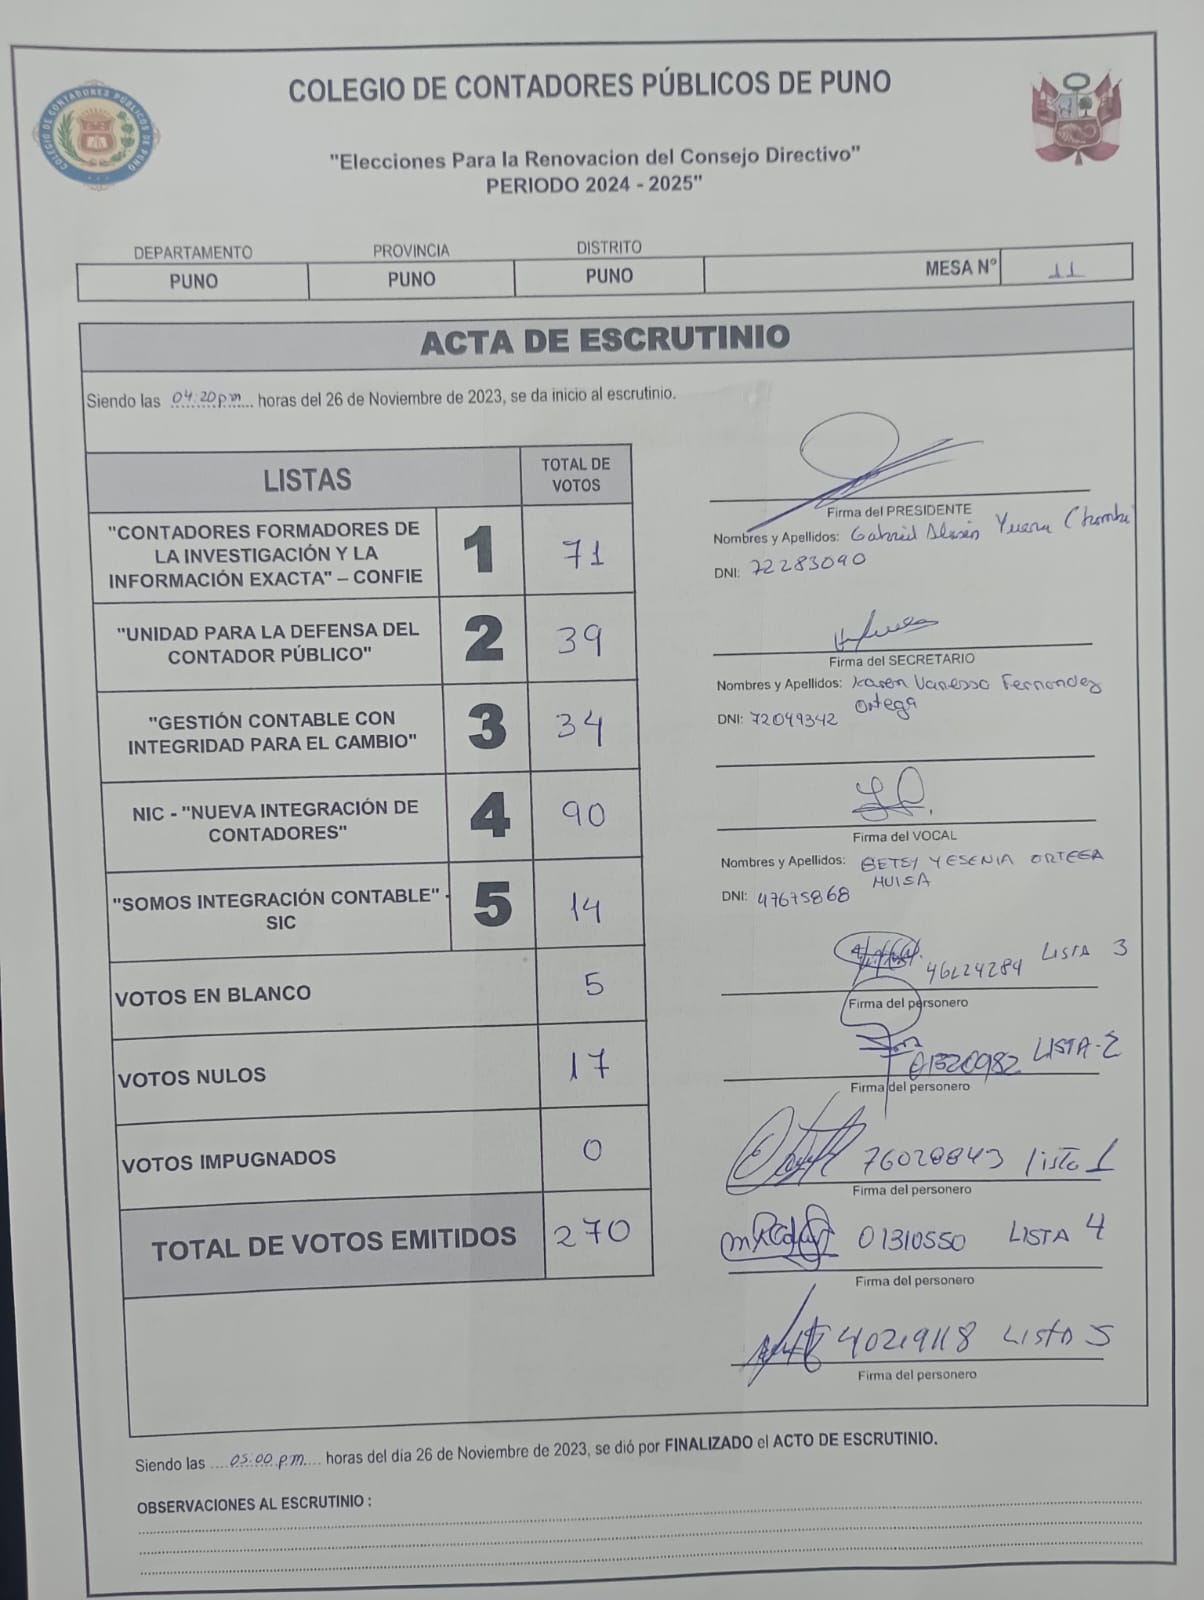 COLEGIO DE CONTADORES PÚBLICOS DE PUNO
COLEGIO DE CONTADORES PÚBLICOS DE PUNO
"Elecciones Para la Renovacion del Consejo Directivo"
PERIODO 2024 - 2025"
DEPARTAMENTO PROVINCIA DISTRITO
PUNO PUNO PUNO MESA N° 11
ACTA DE ESCRUTINIO
Siendo las 04:20pm horas del 26 de Noviembre de 2023, se da inicio al escrutinio.
LISTAS TOTAL DE VOTOS
"CONTADORES FORMADORES DE
LA INVESTIGACIÓN Y LA
INFORMACIÓN EXACTA" – CONFIE 1 71
"UNIDAD PARA LA DEFENSA DEL
CONTADOR PÚBLICO" 2 39
"GESTIÓN CONTABLE CON
INTEGRIDAD PARA EL CAMBIO" 3 34
NIC - "NUEVA INTEGRACIÓN DE
CONTADORES" 4 90
"SOMOS INTEGRACIÓN CONTABLE" -
SIC 5 14
VOTOS EN BLANCO 5
VOTOS NULOS 17
VOTOS IMPUGNADOS 0
TOTAL DE VOTOS EMITIDOS 270
Firma del PRESIDENTE
Nombres y Apellidos: Gabriel
DNI: 72283090
Firma del SECRETARIO
Nombres y Apellidos: Karen Vanessa Fernandez
Ortega
DNI: 72049342
Firma del VOCAL
Nombres y Apellidos: BETSY YESENIA ORTEGA
HUISA
DNI: 47675868
LISTA 3
Firma del personero
01320982 LISTA-2
Firma del personero
76028843 lista 1
Firma del personero
01310550 LISTA 4
Firma del personero
40219118 Lista 5
Firma del personero
Siendo las 05:00 p.m. horas del día 26 de Noviembre de 2023, se dió por FINALIZADO el ACTO DE ESCRUTINIO.
OBSERVACIONES AL ESCRUTINIO :